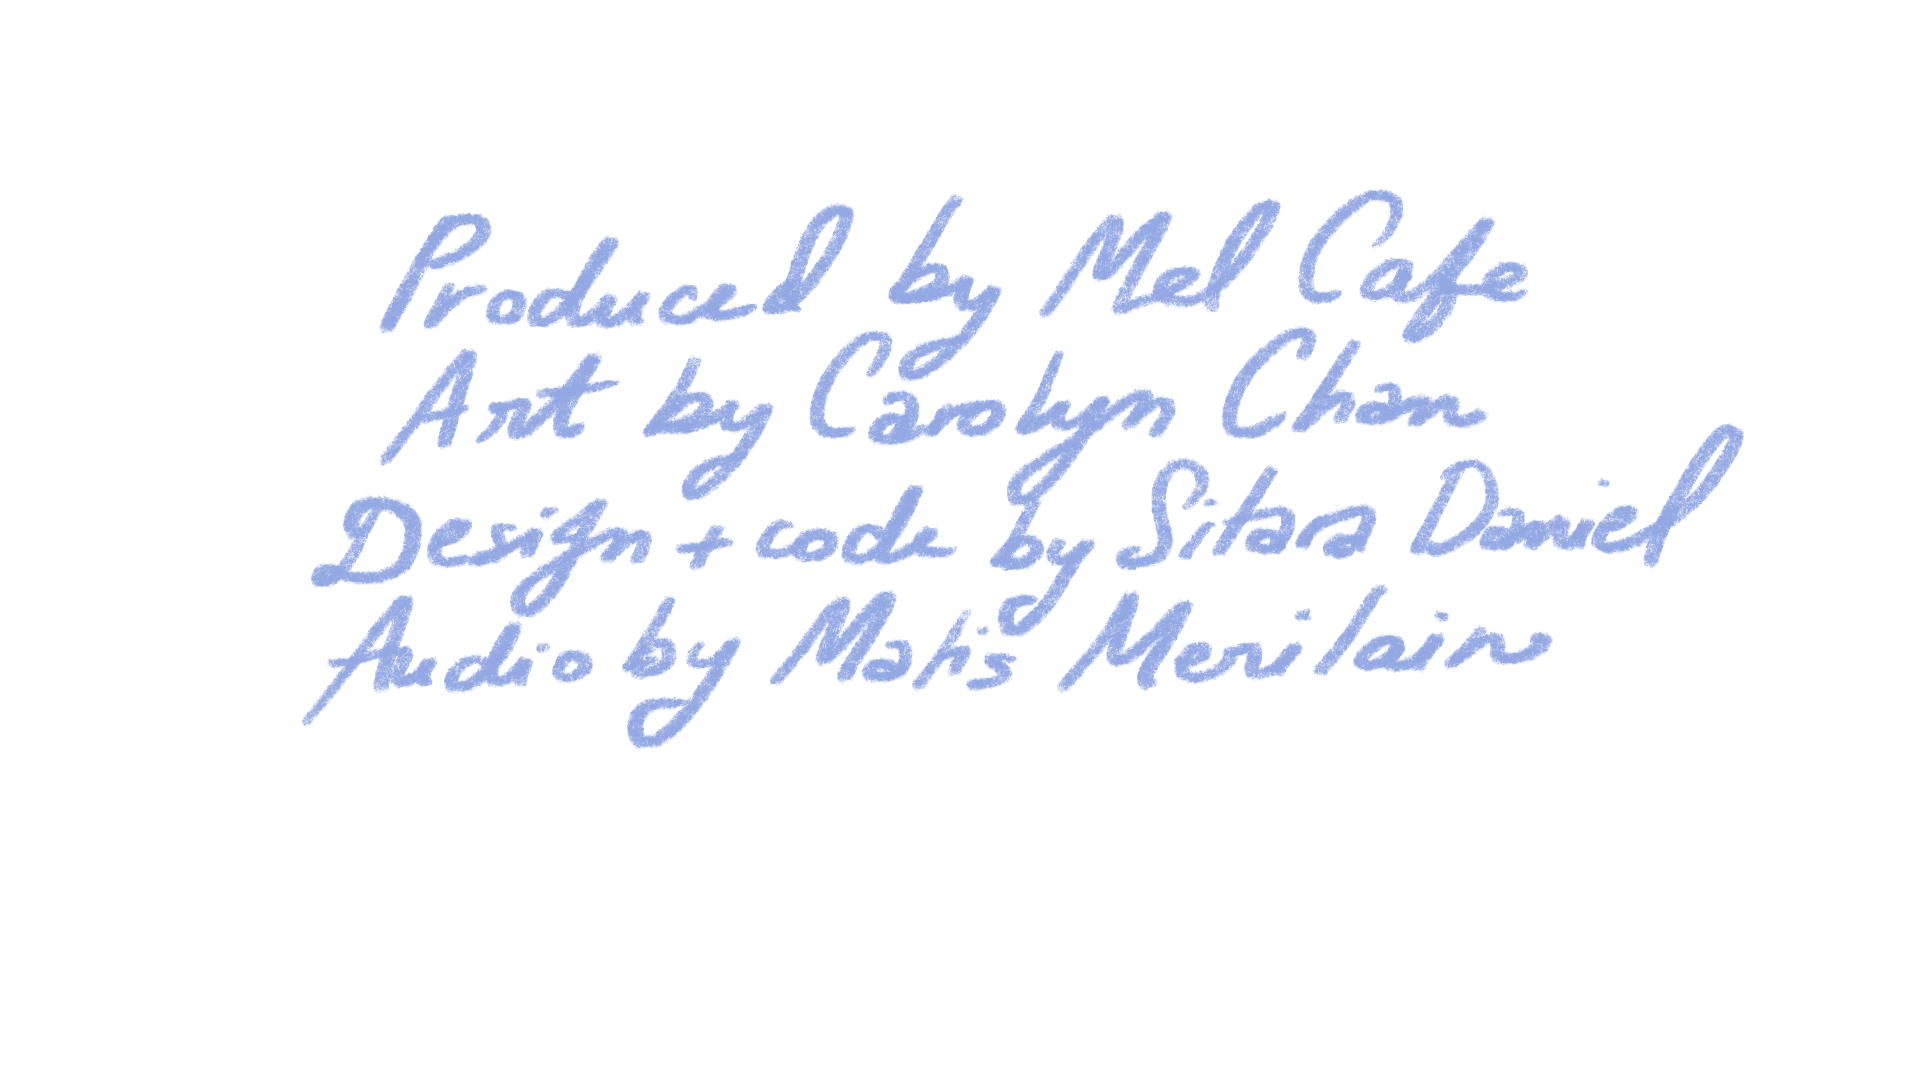 Produced by Mel Cafe
Art by Carolyn Chan
Design + code by Sitara Daniel
Audio by Matis Merilain